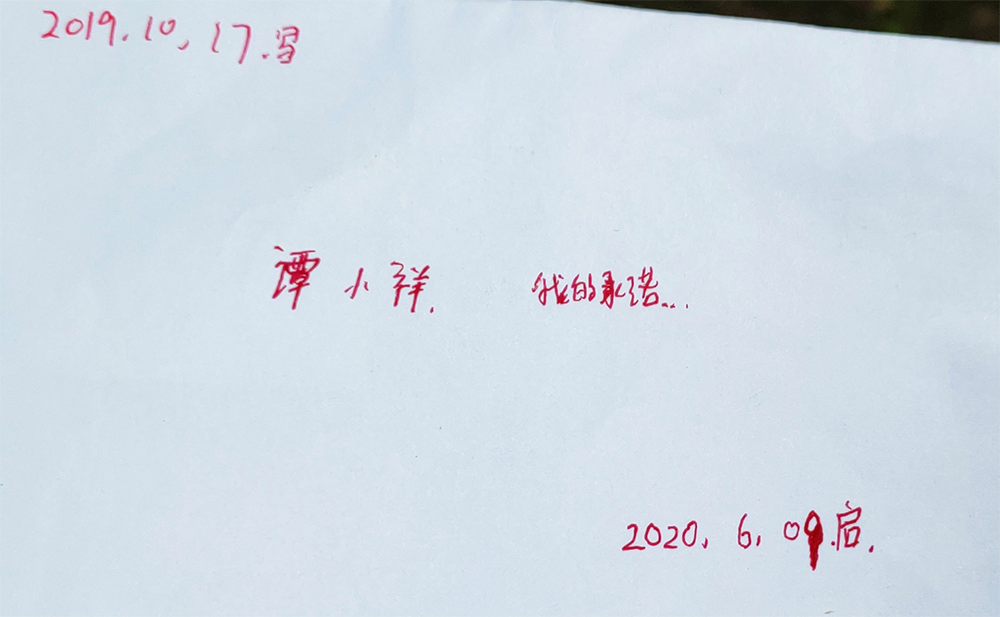 2019.10.17.写
谭小祥. 我的承诺...
2020.6.09.启.